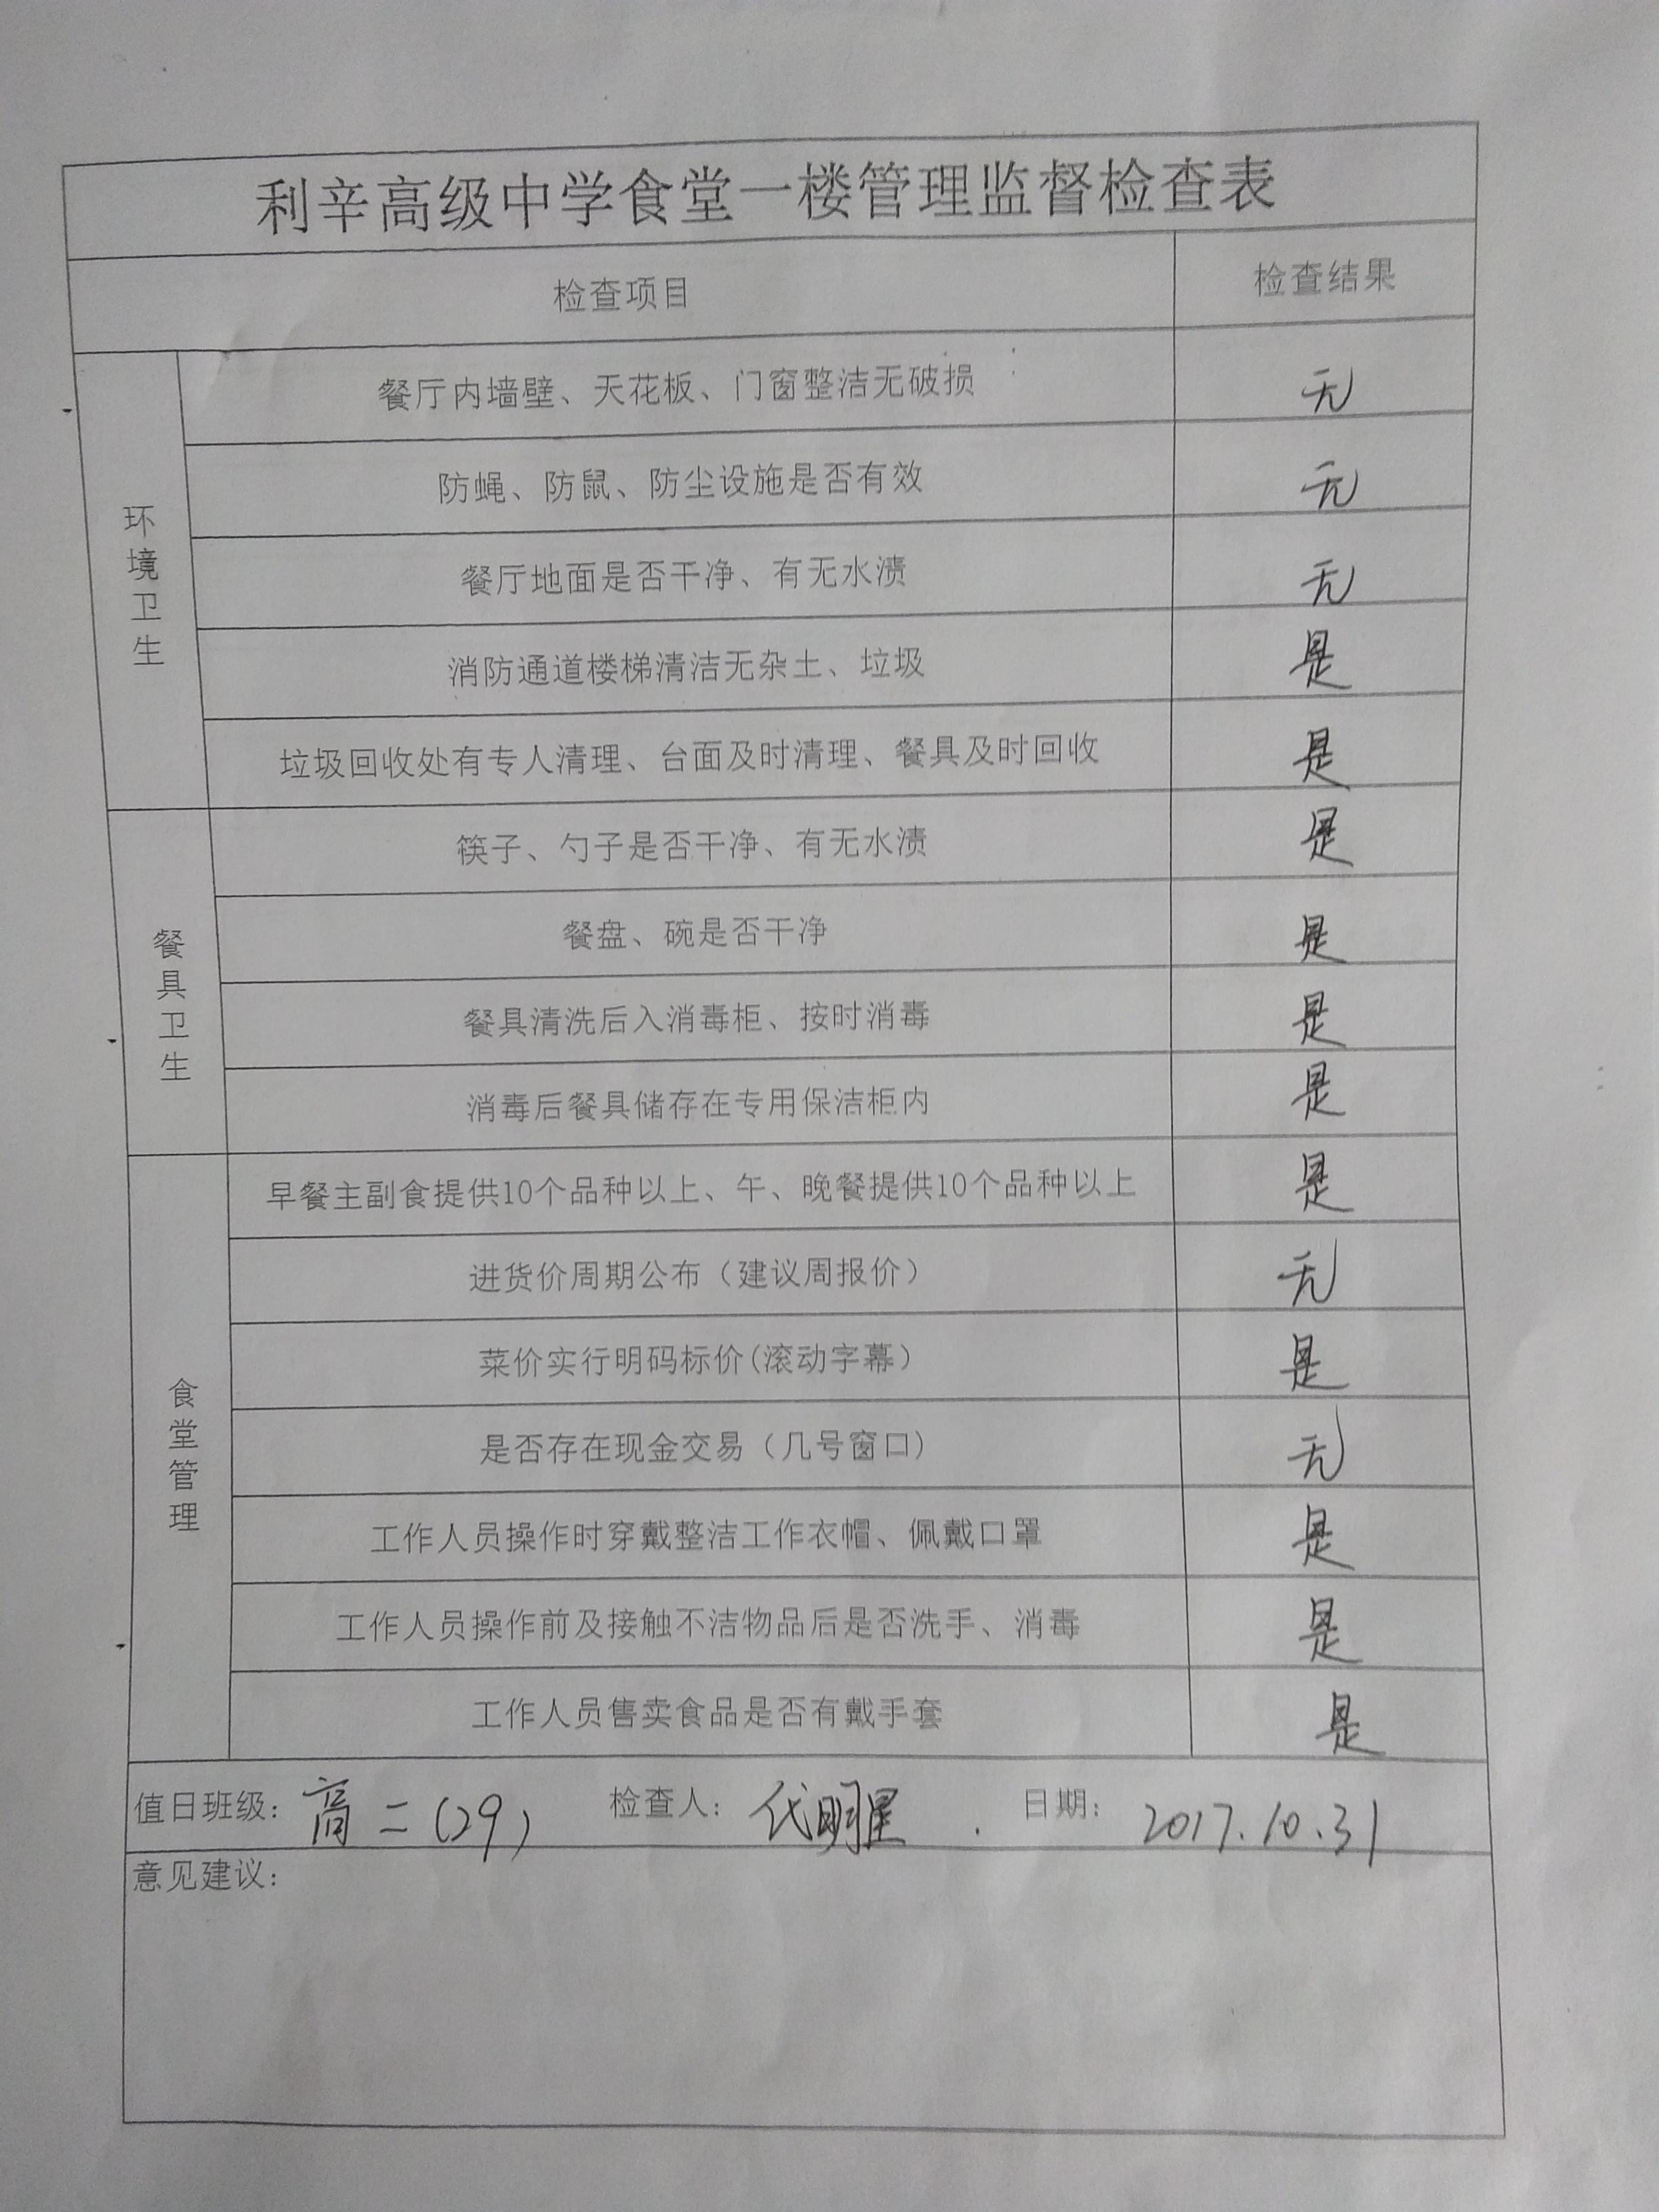 利辛高级中学食堂一楼管理监督检查表
检查项目 检查结果
环境卫生
餐厅内墙壁、天花板、门窗整洁无破损 无
防蝇、防鼠、防尘设施是否有效 无
餐厅地面是否干净、有无水渍 无
消防通道楼梯清洁无杂土、垃圾 是
垃圾回收处有专人清理、台面及时清理、餐具及时回收 是
餐具卫生
筷子、勺子是否干净、有无水渍 是
餐盘、碗是否干净 是
餐具清洗后入消毒柜、按时消毒 是
消毒后餐具储存在专用保洁柜内 是
食堂管理
早餐主副食提供10个品种以上、午、晚餐提供10个品种以上 是
进货价周期公布（建议周报价） 无
菜价实行明码标价(滚动字幕） 是
是否存在现金交易（几号窗口) 无
工作人员操作时穿戴整洁工作衣帽、佩戴口罩 是
工作人员操作前及接触不洁物品后是否洗手、消毒 是
工作人员售卖食品是否有戴手套 是
值日班级：高二(29) 检查人：代明星 日期：2017.10.31
意见建议：